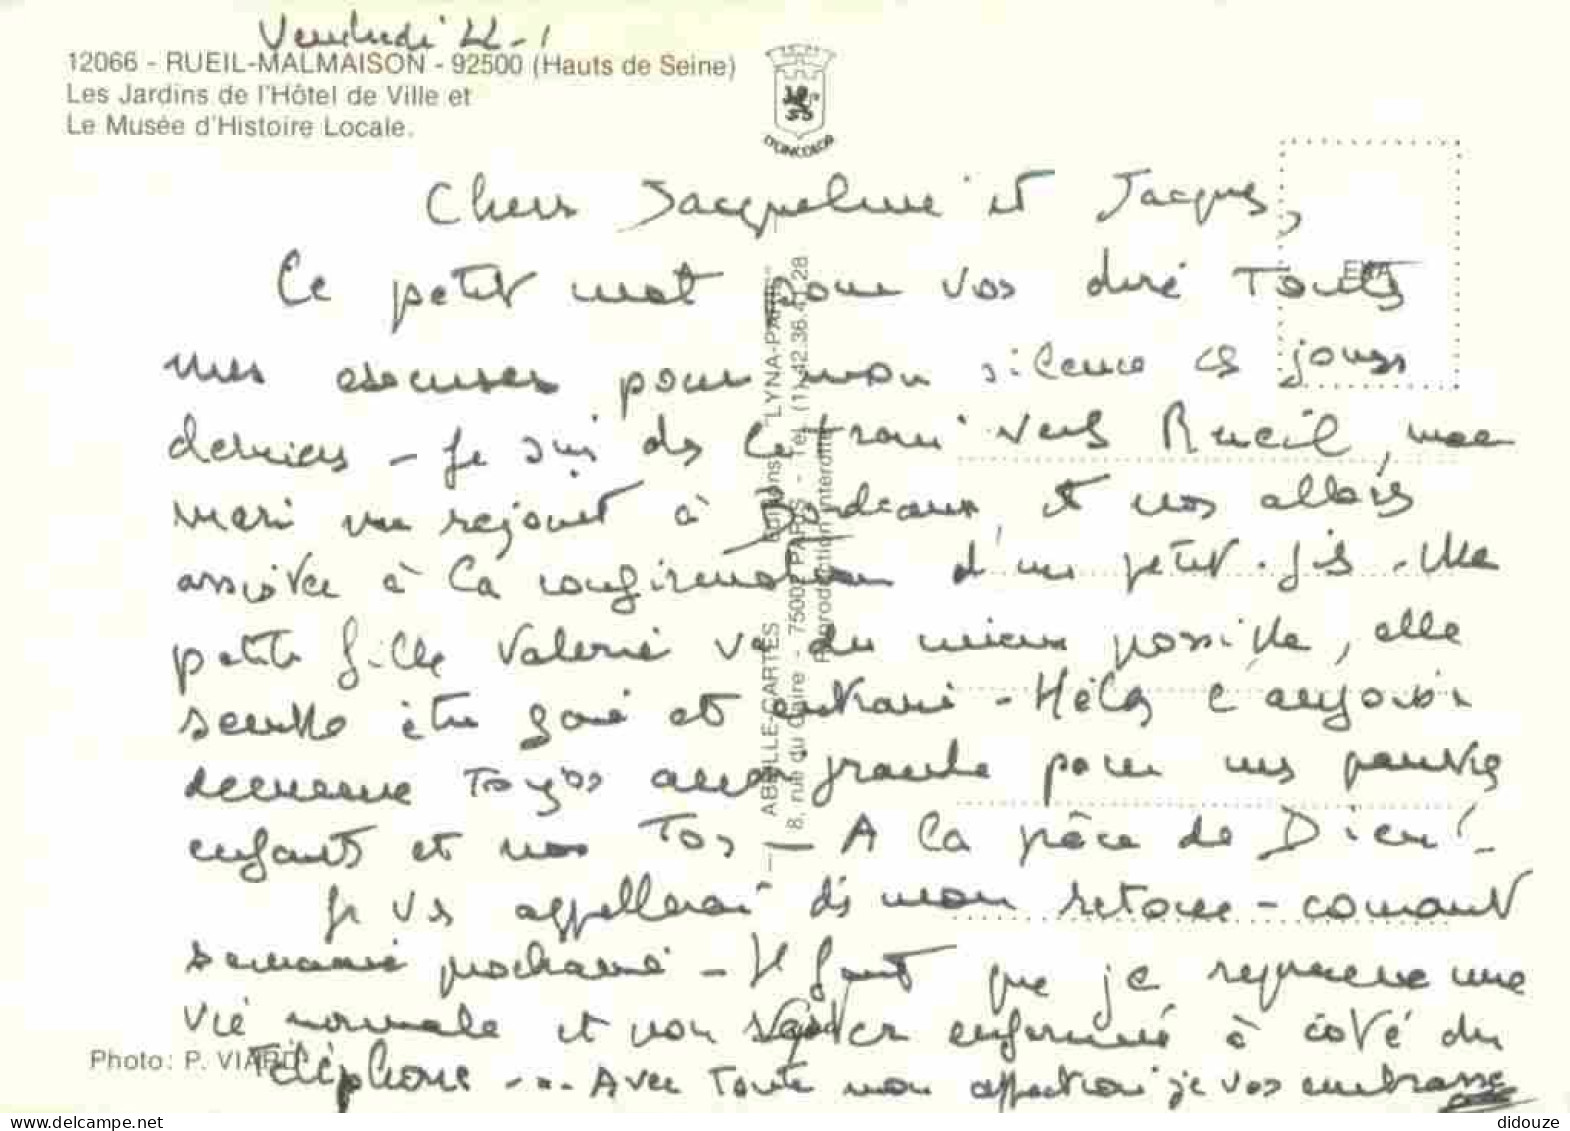 Vendredi 22-1
12066 - RUEIL-MALMAISON - 92500 (Hauts de Seine)
Les Jardins de l'Hôtel de Ville et
Le Musée d'Histoire Locale.
LYNCOLOR
EKA
Chers Jacqueline et Jacques,
Ce petit mot pour vos dire toutes
mes excuses pour mon silence ces jours
derniers - Je suis ds le train vers Rueil, mon
mari me rejoint à Bordeaux, et nos allons
assister à la confirmation d'un petit-fils - Ma
petite fille Valérie va du mieux possible, elle
semble être gaie et - Hélas l'angoisse
demeure toujos aussi grande pour nos pauvres
enfants et nos Tos - A la grâce de Dieu! -
Je vs appellerai dès mon retour - courant
semaine prochaine - Il faut que je reprenne une
vie normale et non rester enfermée à côté du
Téléphone - ... Avec toute mon affection je vos embrasse
ABEILLE-CARTES Editions "LYNA-PARIS"
8, rue du Caire - 75002 PARIS - Tél. (1) 42.36.41.28
Reproduction interdite
Photo: P. VIARD
https://www.delcampe.net
didouze